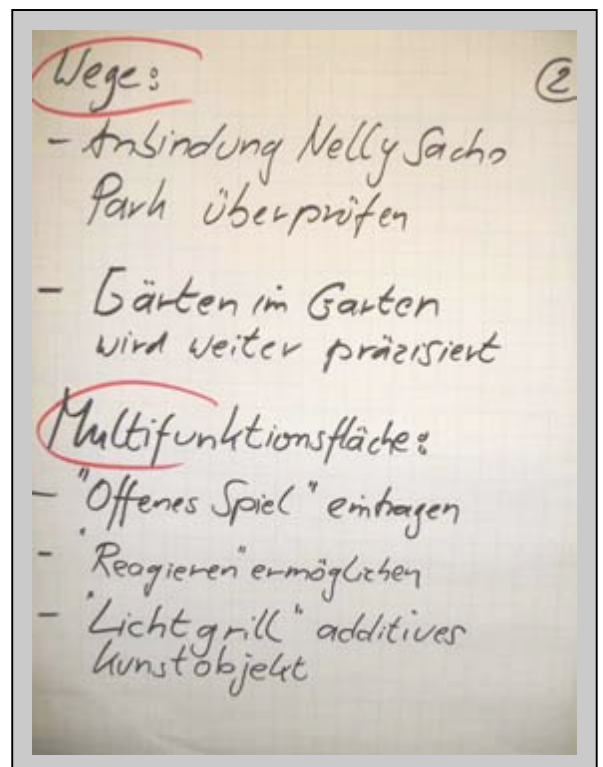 Wege:
②
- Anbindung Nelly Sachs
Park überprüfen
- Gärten im Garten
wird weiter präzisiert
Multifunktionsfläche:
- "Offenes Spiel" eintragen
- "Reagieren" ermöglichen
- "Lichtgrill" additives
Kunstobjekt